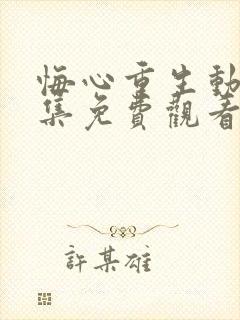 悔心重生動
集免費觀看
許某雄